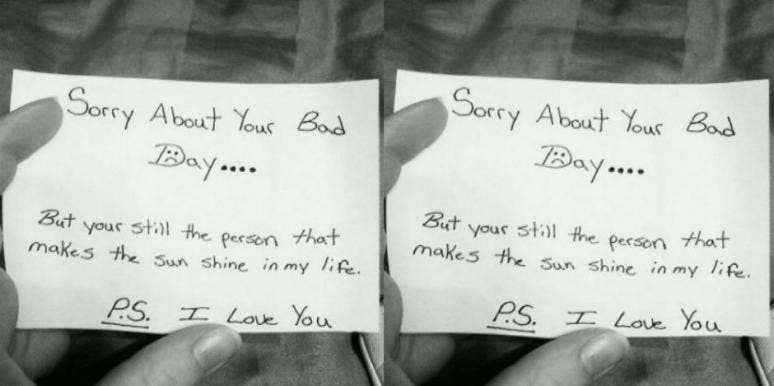 Sorry About Your Bad
Day....
But your still the person that
makes the sun shine in my life.
P.S. I Love You
Sorry About Your Bad
Day....
But your still the person that
makes the sun shine in my life.
P.S. I Love You